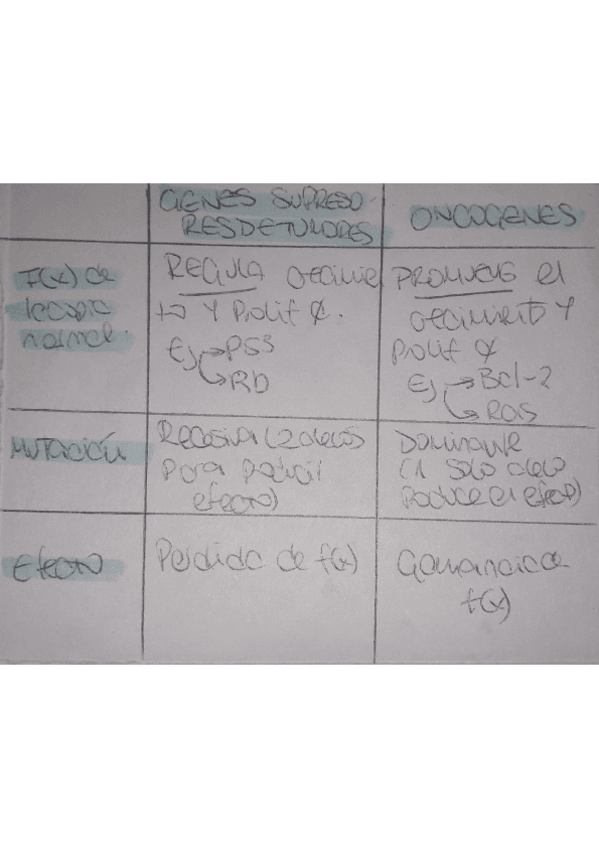 GENES SUPRESO-
RES DE TUMORES
ONCOGENES
F(x) de
la copia
normal.
REGULA crecimien
to y Prolif ₵.
Ej → P53
→ RB
PROMUEVE el
crecimiento y
Prolif ₵
Ej → Bcl-2
→ RAS
MUTACIÓN
Recesiva (2 alelos
para producir
efecto)
DOMINANTE
(1 solo alelo
produce el efecto)
Efecto
Perdida de f(x)
Ganancia de
f(x)